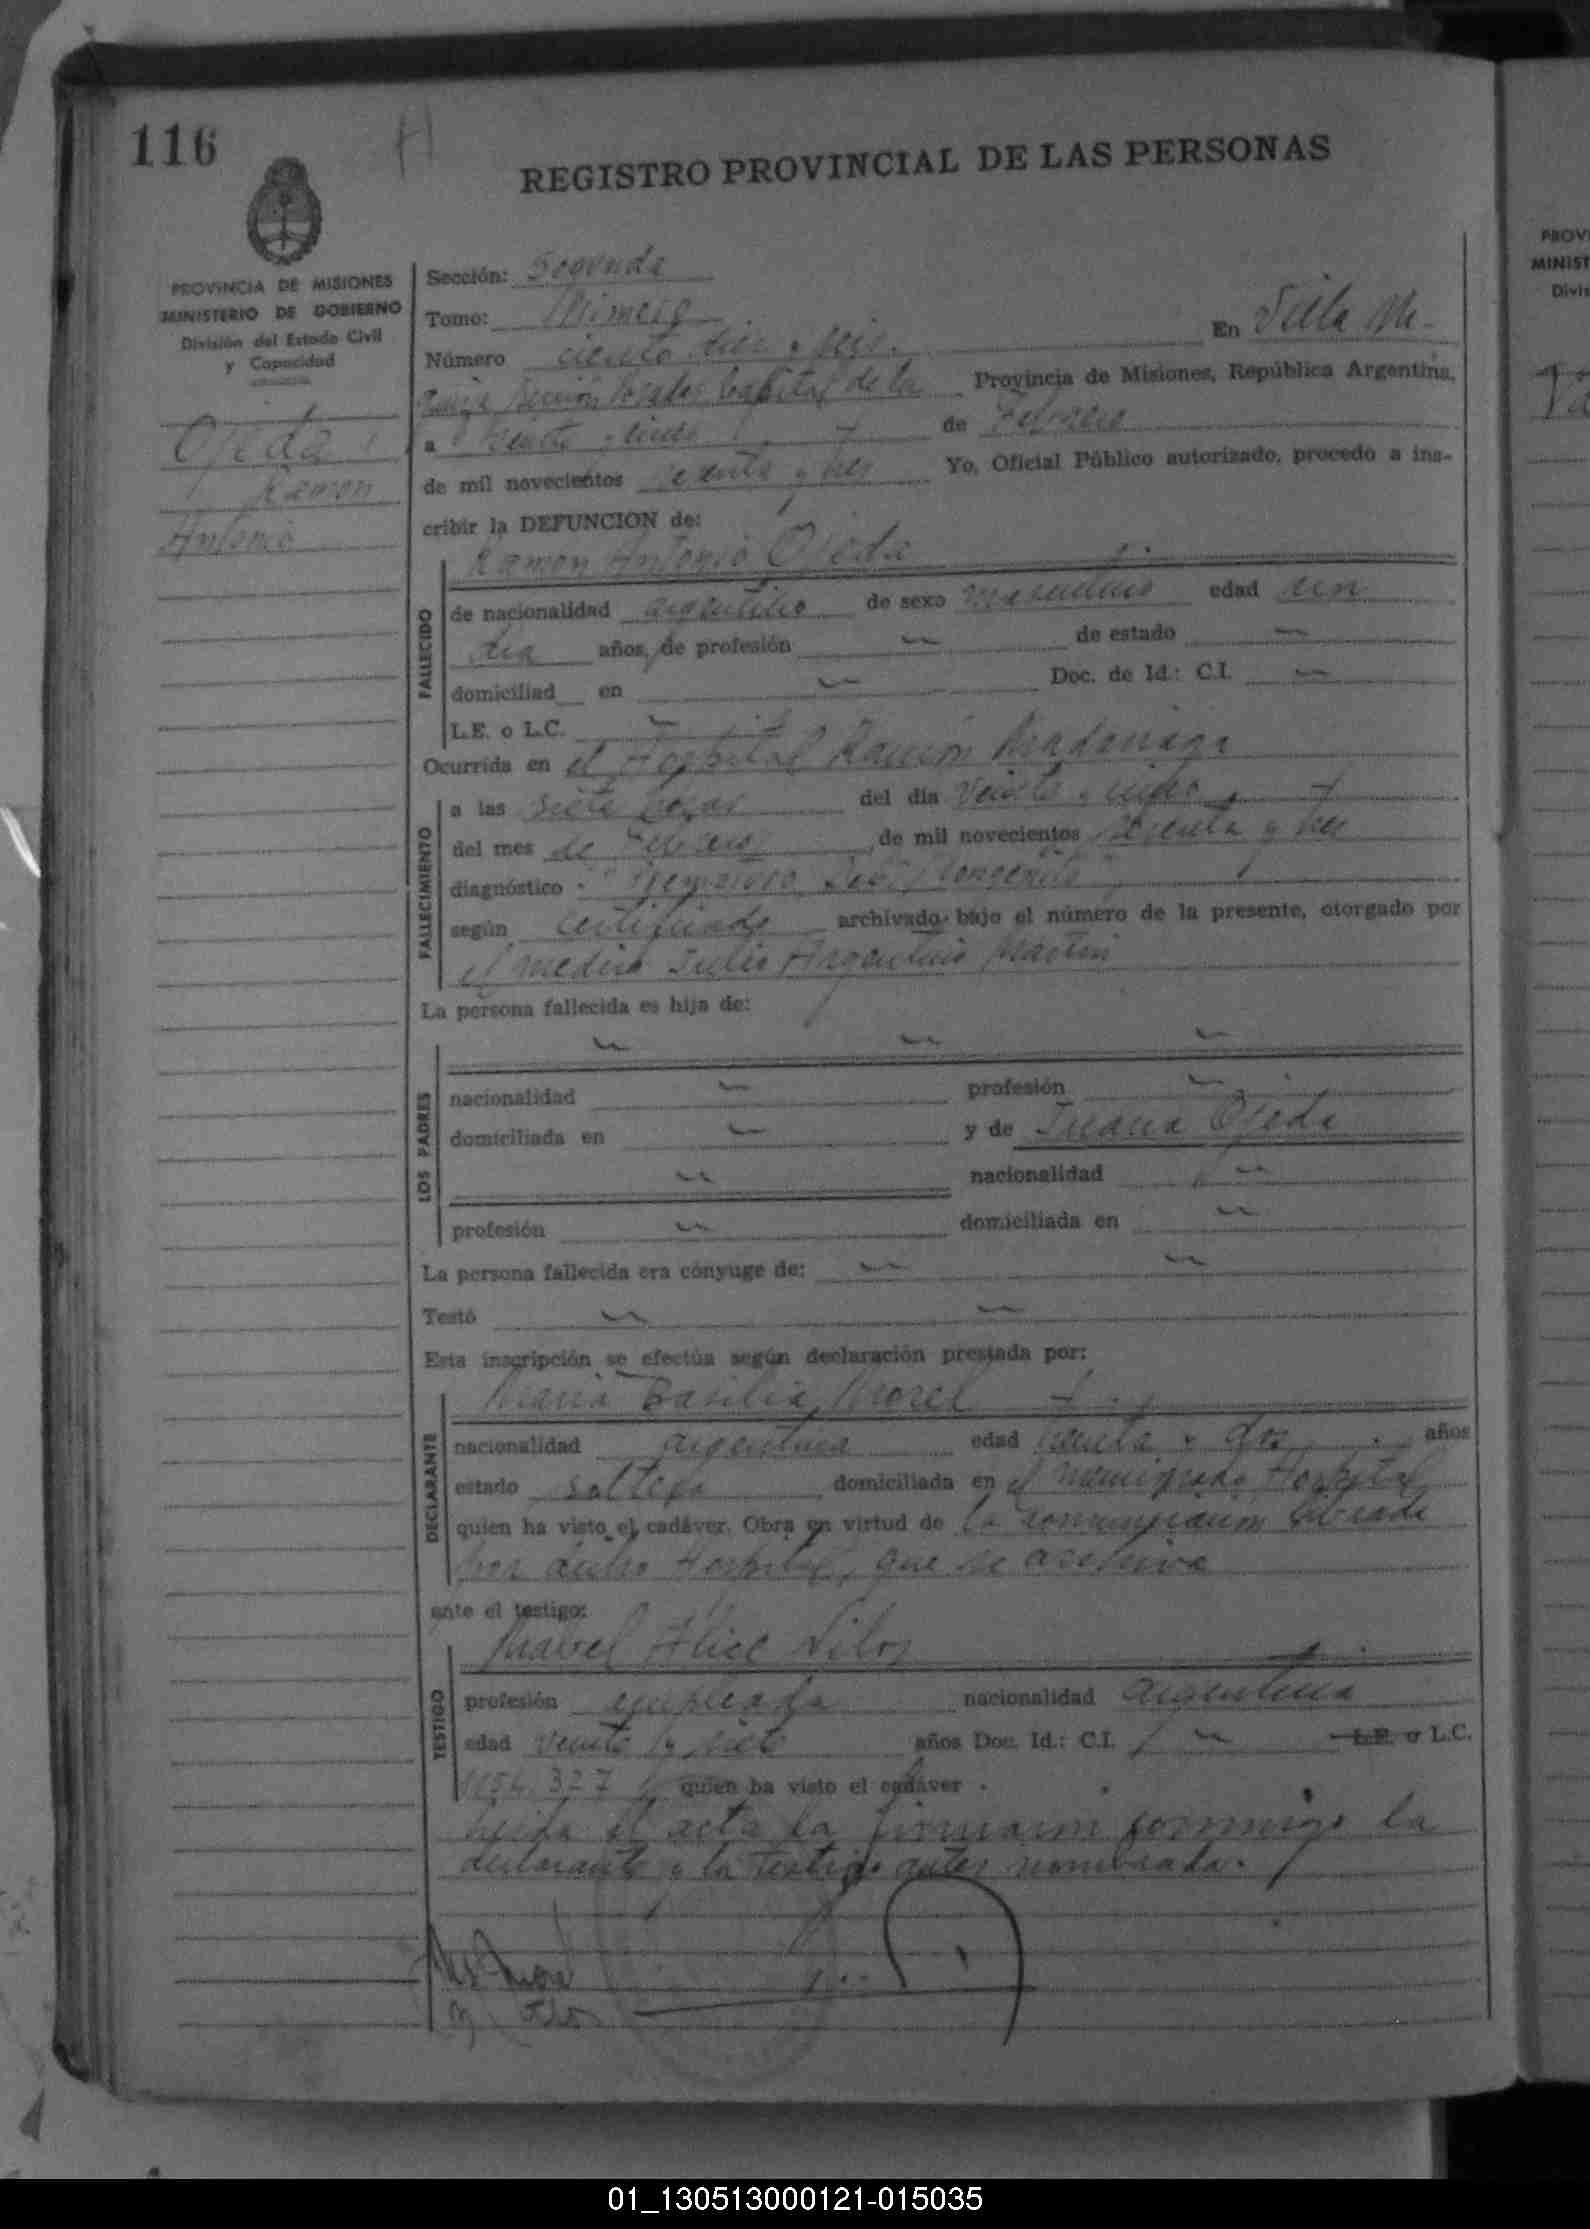 116
H
REGISTRO PROVINCIAL DE LAS PERSONAS
PROVINCIA DE MISIONES
MINISTERIO DE GOBIERNO
División del Estado Civil
y Capacidad
Ojeda
Ramon
Antonio
Sección: Segunda
Tomo: Primero
Número ciento diez y seis. En Villa
Sección Posadas Capital de la Provincia de Misiones, República Argentina,
a veinte y cinco de Febrero
de mil novecientos sesenta y tres Yo, Oficial Público autorizado, procedo a ins-
cribir la DEFUNCION de:
Ramon Antonio Ojeda
FALLECIDO
de nacionalidad argentino de sexo masculino edad un
dia años, de profesión de estado
domiciliad en Doc. de Id.: C.I.
L.E. o L.C.
Ocurrida en el Hospital Ramón Madariaga
FALLECIMIENTO
a las siete horas del día veinte y cinco
del mes de Febrero de mil novecientos sesenta y tres
diagnóstico "Prematuro Deb. Congenita"
según certificado archivado bajo el número de la presente, otorgado por
el medico Julio Argentino Martin
La persona fallecida es hija de:
LOS PADRES
nacionalidad profesión
domiciliada en y de Juana Ojeda
nacionalidad
profesión domiciliada en
La persona fallecida era cónyuge de:
Testó
Esta inscripción se efectúa según declaración prestada por:
Maria Basilia Morel
DECLARANTE
nacionalidad argentina edad treinta y dos años
estado soltera domiciliada en el nominado Hospital
quien ha visto el cadáver. Obra en virtud de la comunicacion librada
por dicho Hospital, que se archiva
ante el testigo:
Mabel Alice
TESTIGO
profesión empleada nacionalidad argentina
edad veinte y siete años Doc. Id.: C.I. L.E. o L.C.
327 quien ha visto el cadáver.
Leida el acta la firmaron conmigo la
declarante y la testigo antes nombrada.
PROV
MINIST
Divis
01_130513000121-015035